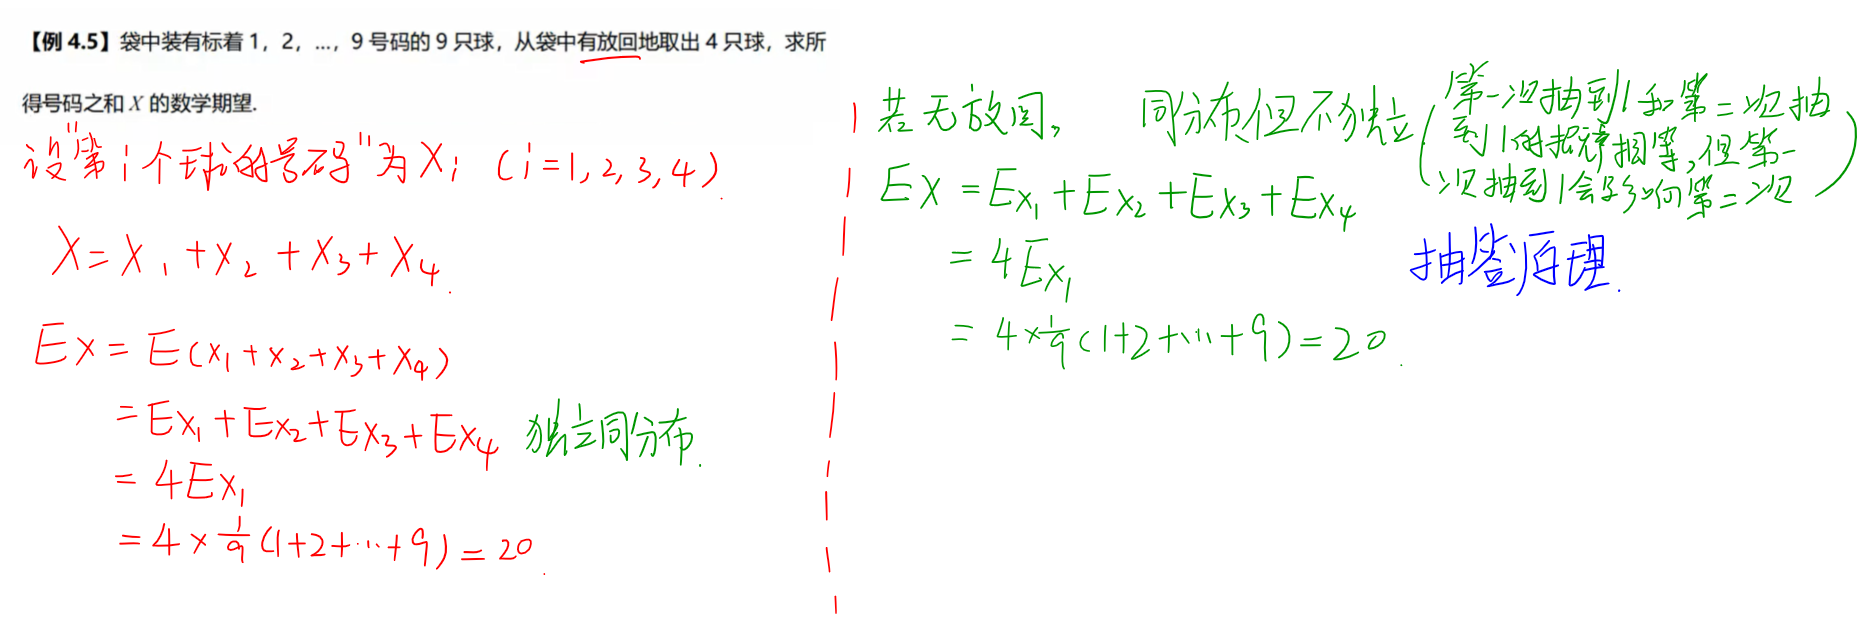 【例 4.5】袋中装有标着 1，2，...，9 号码的 9 只球，从袋中有放回地取出 4 只球，求所
得号码之和 X 的数学期望.
设"第 i 个球的号码"为 Xi (i=1,2,3,4).
X = X1 + X2 + X3 + X4.
EX = E(X1+X2+X3+X4)
= EX1 + EX2 + EX3 + EX4 独立同分布.
= 4EX1
= 4 × 1/9 (1+2+…+9) = 20.
若无放回, 同分布但不独立 (第一次抽到1和第二次抽
到1的概率相等,但第一
次抽到1会影响第二次)
EX = EX1 + EX2 + EX3 + EX4
= 4EX1
抽签原理.
= 4 × 1/9 (1+2+…+9) = 20.